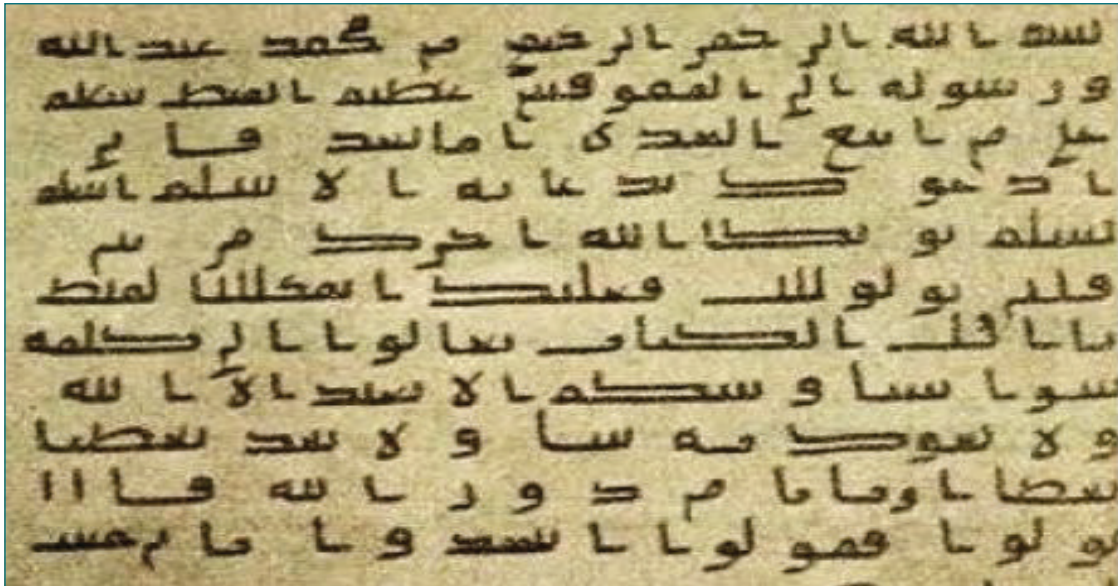 بسم الله الرحمن الرحيم من محمد عبد الله
ورسوله الى المقوقس عظيم القبط سلم
على من اتبع الهدى اما بعد فاني
ادعوك بدعاية الاسلم اسلم
تسلم يوتك الله اجرك مرتين
فان توليت فعليك اثم القبط
يا اهل الكتاب تعالوا الى كلمة
سوا بيننا وبينكم الا نعبد الا الله
ولا نشرك به شيا ولا يتخذ بعضنا
بعضا اربابا من دون الله فان
تولوا فقولوا اشهدوا بانا